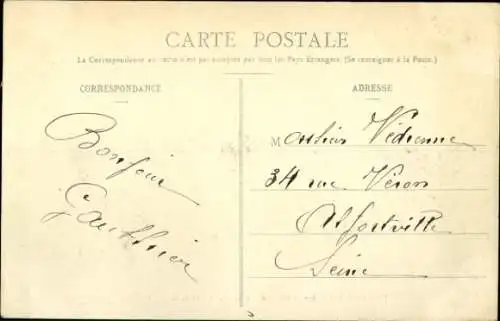 CARTE POSTALE
La Correspondance au recto n'est pas acceptée par tous les Pays Étrangers. (Se renseigner à la Poste.)
CORRESPONDANCE
ADRESSE
Bonjour
Gauthier
M
34 rue Véron
Alfortville
Seine